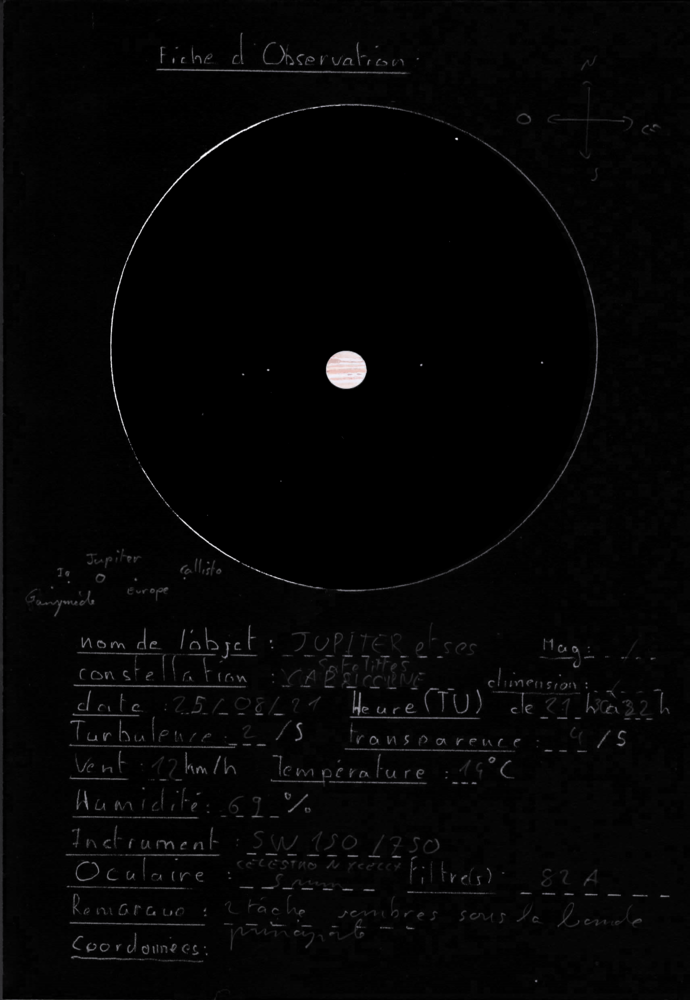 Fiche d'Observation.
N
O
S
Jupiter
Io
Callisto
Ganymède
europe
nom de l'objet : JUPITER et ses
satellites
Mag : /
constellation : CAPRICORNE
dimension : /
date : 25/08/21 Heure (TU) de 21 h à h
Turbulence : 2 /5 transparence : 4 /5
Vent : 12 km/h Température : 14°C
Humidité : 69 %
Instrument : SW 150 /750
CELESTRON
Oculaire : 5 mm Filtre(s) : 82 A
Remarque : 2 tâche sombres sous la bande
principale
Coordonnées :